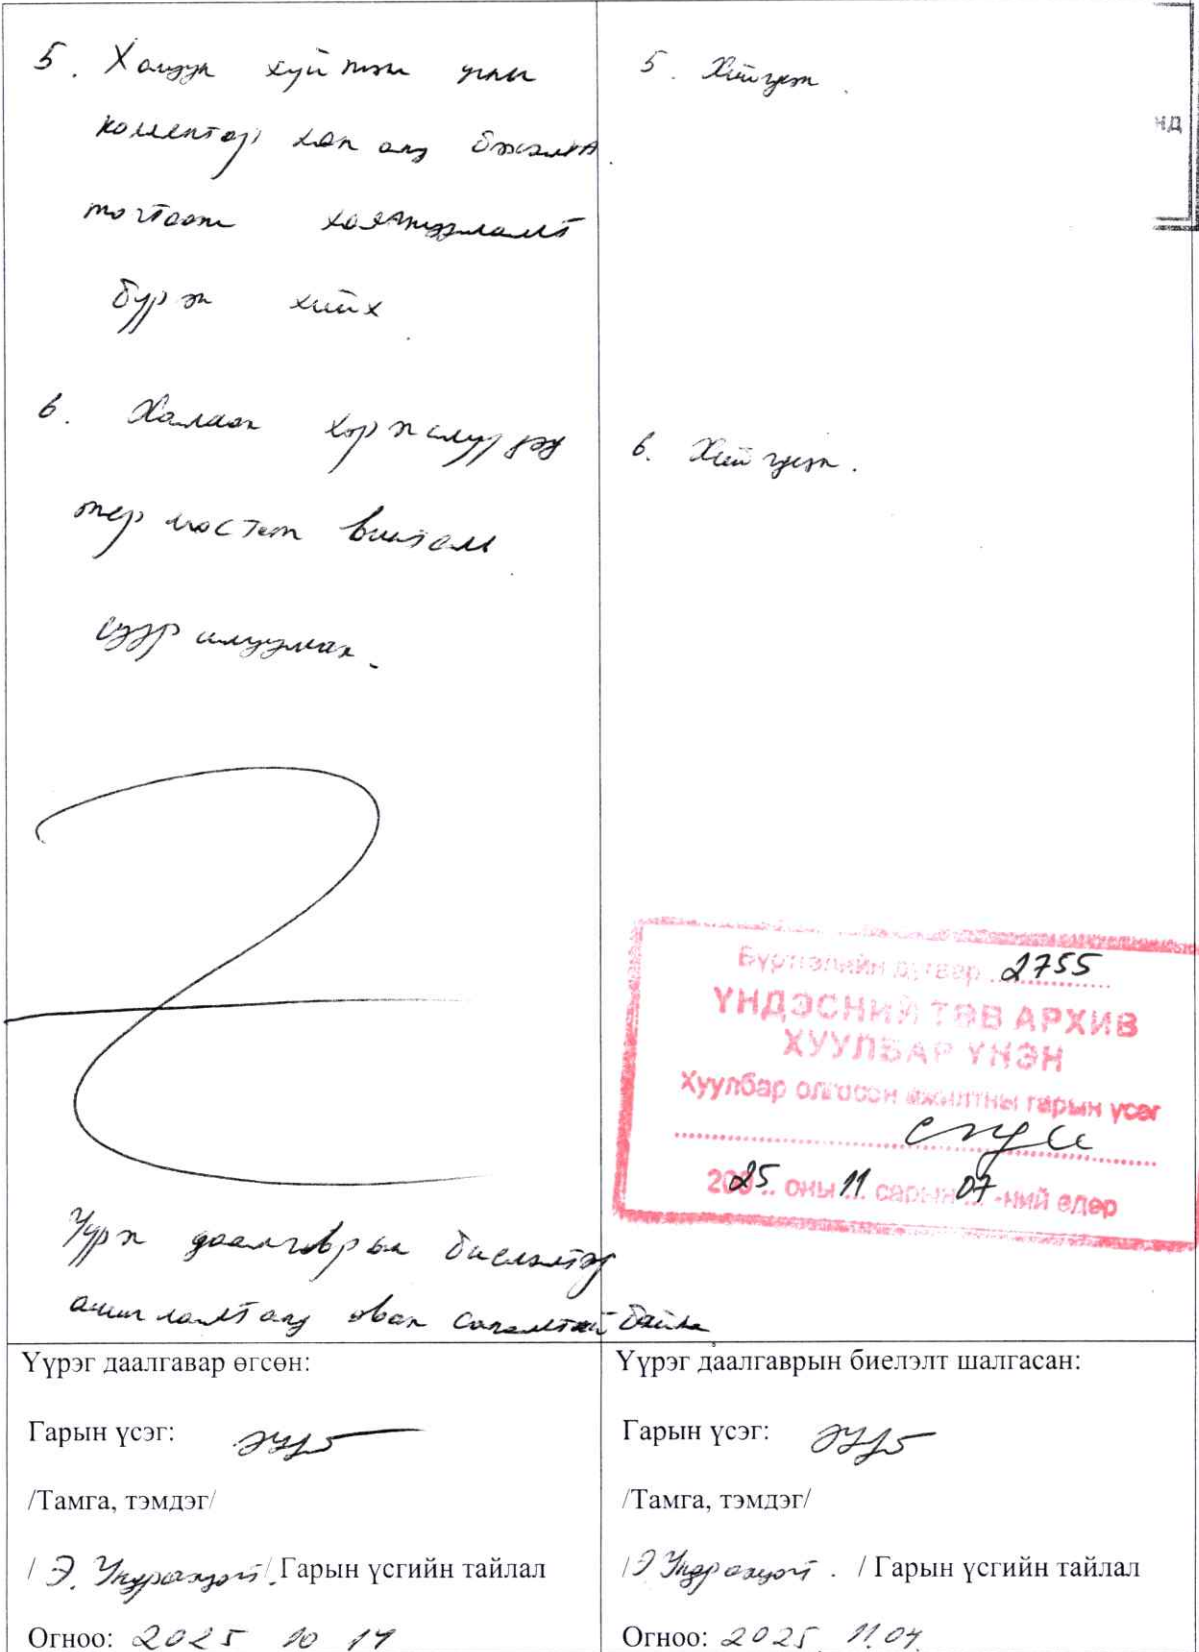 5. Халуун хүйтэн усны
коллектор хаалтанд бэхэлгээ
тогтоож хаягжуулалт
бүрэн хийх.
6. Халаах хэрэгслүүдэд
термостат винтель
суурилуулах.
Үүрэг даалгаврын биелэлтэд
ашиглалтанд авах саналтай байна
5. Хийгдсэн.
6. Хийгдсэн.
НД
Бүртгэлийн дугаар 2755
ҮНДЭСНИЙ ТӨВ АРХИВ
ХУУЛБАР ҮНЭН
Хуулбар олгосон ажилтны гарын үсэг
2025 оны 11 сарын 07-ний өдөр
Үүрэг даалгавар өгсөн:
Гарын үсэг:
/Тамга, тэмдэг/
/ Э. / Гарын үсгийн тайлал
Огноо: 2025 10 14
Үүрэг даалгаврын биелэлт шалгасан:
Гарын үсэг:
/Тамга, тэмдэг/
/ Э / Гарын үсгийн тайлал
Огноо: 2025 11.04